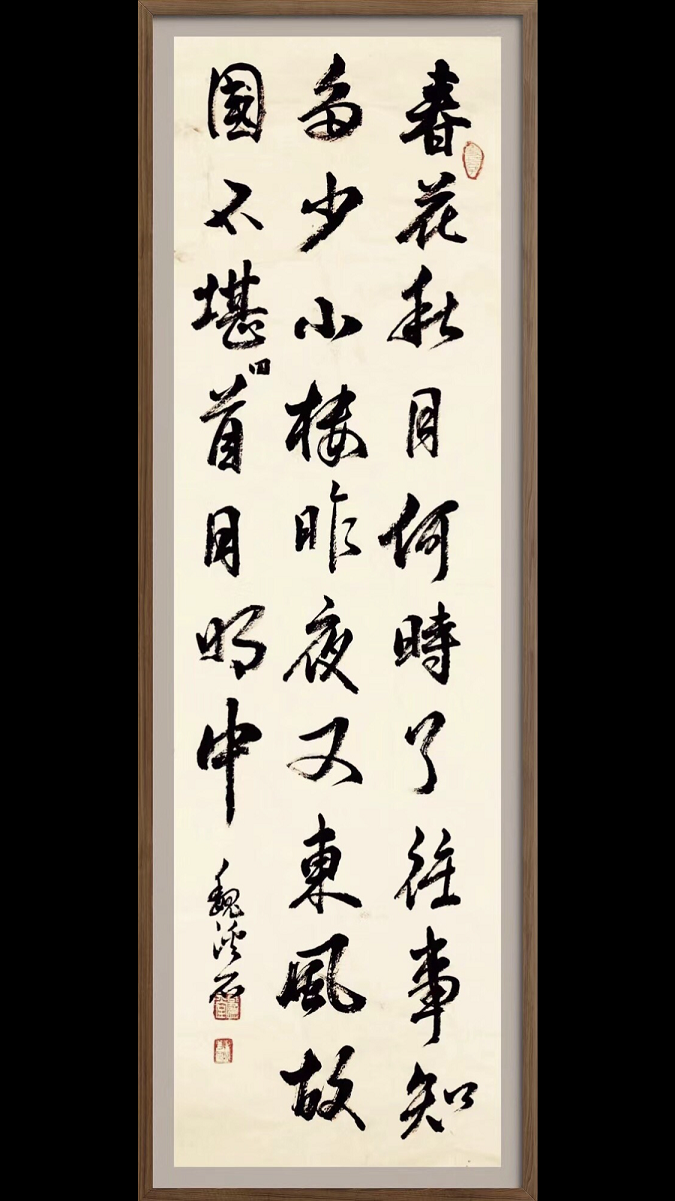 春花秋月何時了往事知
多少小樓昨夜又東風故
國不堪回首月明中
魏溪石